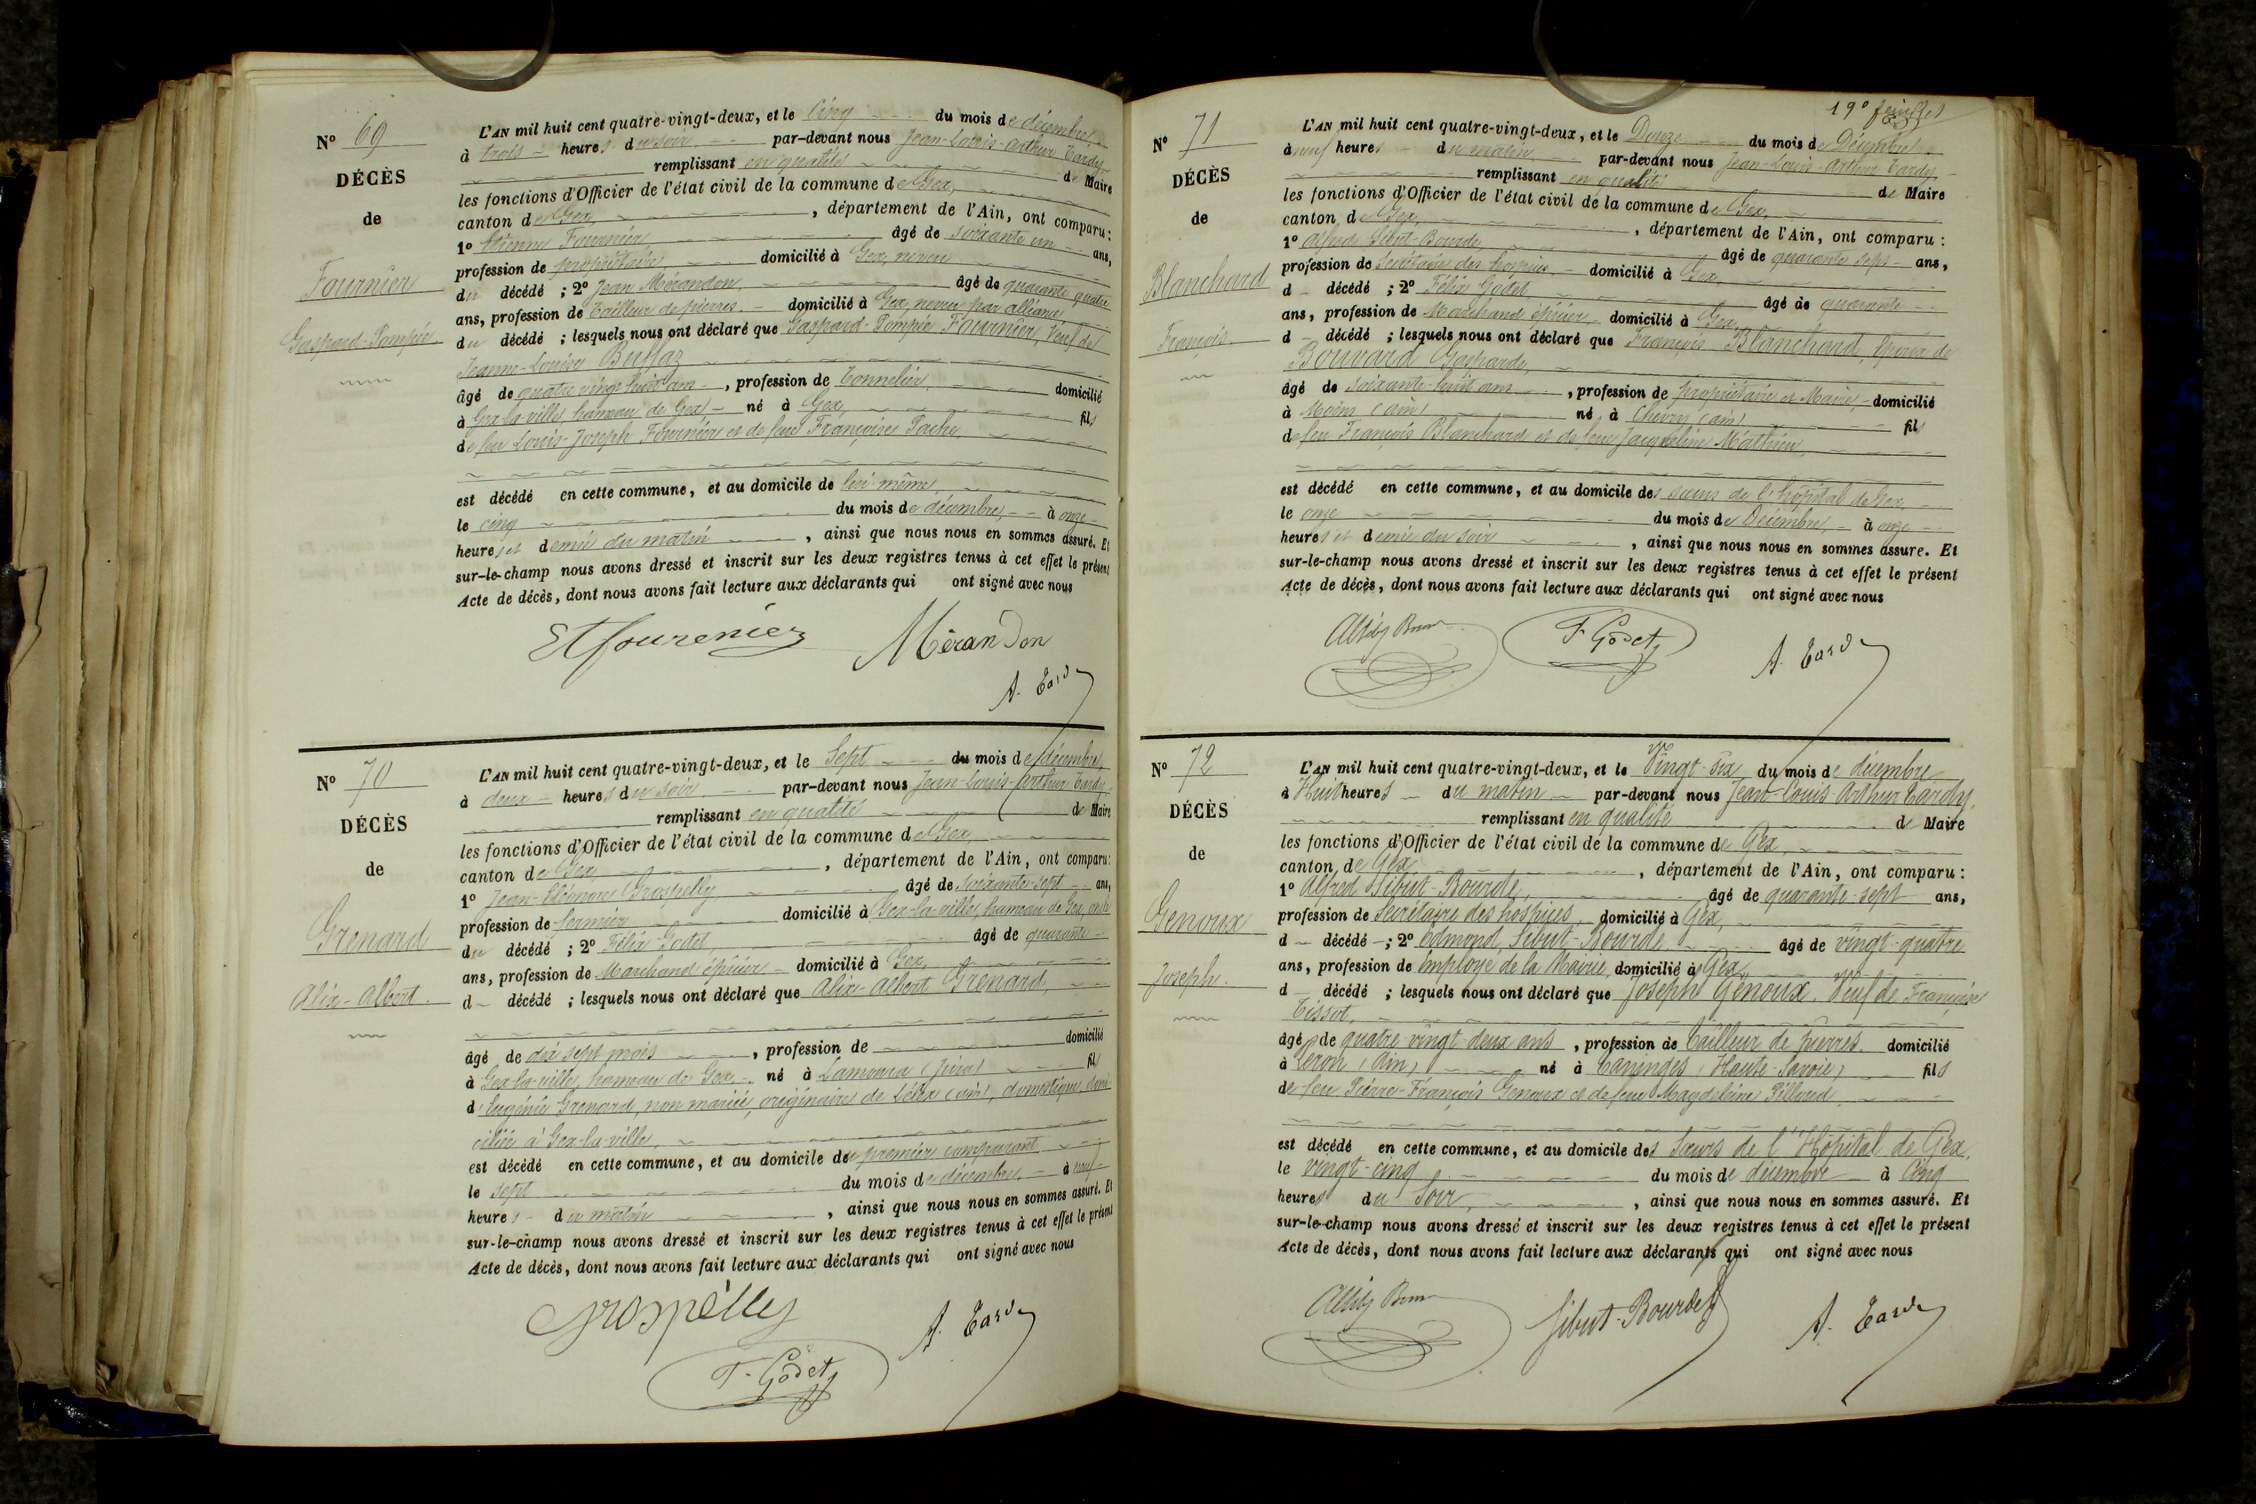 Nº 69
DÉCÈS
de
Fournier
Gaspard-Pompée
L'AN mil huit cent quatre-vingt-deux, et le cinq du mois de décembre
à trois heures du soir par-devant nous Jean-Louis-Arthur Tardy
remplissant en qualité de Maire
les fonctions d'Officier de l'état civil de la commune de Gex,
canton de Gex, département de l'Ain, ont comparu :
1º Etienne Fournier âgé de soixante un ans,
profession de propriétaire domicilié à Gex, neveu
du décédé ; 2º Jean Mérandon âgé de quarante quatre
ans, profession de Tailleur de pierres domicilié à Gex, neveu par alliance
du décédé ; lesquels nous ont déclaré que Gaspard-Pompée Fournier, Veuf de
Jeanne-Louise
âgé de quatre vingt huit ans, profession de Tonnelier, domicilié
à Gex-la-ville, hameau de Gex, né à Gex, fils
de feu Louis-Joseph Fournier et de feue Françoise
est décédé en cette commune, et au domicile de lui-même,
le cinq du mois de décembre, à onze
heures et demie du matin, ainsi que nous nous en sommes assuré. Et
sur-le-champ nous avons dressé et inscrit sur les deux registres tenus à cet effet le présent
Acte de décès, dont nous avons fait lecture aux déclarants qui ont signé avec nous
Et fourenier Mérandon
A. Tardy
Nº 70
DÉCÈS
de
Grenard
Alix-Albert.
L'AN mil huit cent quatre-vingt-deux, et le Sept du mois de décembre,
à deux heures du soir par-devant nous Jean-Louis-Arthur Tardy
remplissant en qualité de Maire
les fonctions d'Officier de l'état civil de la commune de Gex,
canton de Gex, département de l'Ain, ont comparu :
1º Jean-Eléonore Grospelly âgé de soixante-sept ans,
profession de fermier domicilié à Gex-la-ville, hameau de Gex,
du décédé ; 2º Félix Godet âgé de quarante
ans, profession de Marchand épicier domicilié à Gex,
d décédé ; lesquels nous ont déclaré que Alix-Albert Grenard,
âgé de dix sept mois, profession de domicilié
à Gex-la-ville, hameau de Gex, né à Lamoura (Jura) fils
d'Eugénie Grenard, non mariée, originaire de Lélex (Ain), domestique, domi-
ciliée à Gex-la-ville,
est décédé en cette commune, et au domicile de premier comparant
le sept du mois de décembre, à neuf
heures du matin, ainsi que nous nous en sommes assuré. Et
sur-le-champ nous avons dressé et inscrit sur les deux registres tenus à cet effet le présent
Acte de décès, dont nous avons fait lecture aux déclarants qui ont signé avec nous
Grospélly A. Tardy
F. Godet
19º feuillet
Nº 71
DÉCÈS
de
Blanchard
François.
L'AN mil huit cent quatre-vingt-deux, et le Douze du mois de Décembre
à neuf heures du matin par-devant nous Jean-Louis-Arthur Tardy,
remplissant en qualité de Maire
les fonctions d'Officier de l'état civil de la commune de Gex,
canton de Gex, département de l'Ain, ont comparu :
1º Alfred Sibut-Bourde âgé de quarante sept ans,
profession de Secrétaire des hospices, domicilié à Gex,
d décédé ; 2º Félix Godet âgé de quarante
ans, profession de Marchand épicier domicilié à Gex,
d décédé ; lesquels nous ont déclaré que François Blanchard, Epoux de
Bouvard Gasparde,
âgé de soixante-huit ans, profession de propriétaire et Maire, domicilié
à (Ain) né à Chevry (Ain) fils
de feu François Blanchard et de feue Jacqueline Mathieu
est décédé en cette commune, et au domicile des sœurs de l'hôpital de Gex,
le onze du mois de Décembre, à onze
heures et demie du soir, ainsi que nous nous en sommes assuré. Et
sur-le-champ nous avons dressé et inscrit sur les deux registres tenus à cet effet le présent
Acte de décès, dont nous avons fait lecture aux déclarants qui ont signé avec nous
F. Godet A. Tardy
Nº 72
DÉCÈS
de
Genoux
Joseph.
L'AN mil huit cent quatre-vingt-deux, et le Vingt-six du mois de décembre
à Huit heures du matin par-devant nous Jean-Louis Arthur Tardy,
remplissant en qualité de Maire
les fonctions d'Officier de l'état civil de la commune de Gex,
canton de Gex, département de l'Ain, ont comparu :
1º Alfred Sibut-Bourde, âgé de quarante-sept ans,
profession de Secrétaire des hospices, domicilié à Gex,
d décédé ; 2º Edmond, Sibut-Bourde âgé de vingt-quatre
ans, profession de Employé de la Mairie, domicilié à Gex,
d décédé ; lesquels nous ont déclaré que Joseph Genoux. Veuf de Françoise
Tissot,
âgé de quatre vingt deux ans, profession de Tailleur de pierres. domicilié
à Péron (Ain) né à Taninges (Haute-Savoie) fils
de feu Pierre-François Genoux et de feue Magdeleine Pilloud
est décédé en cette commune, et au domicile des Sœurs de l'Hôpital de Gex,
le vingt-cinq du mois de décembre à Cinq
heures du Soir, ainsi que nous nous en sommes assuré. Et
sur-le-champ nous avons dressé et inscrit sur les deux registres tenus à cet effet le présent
Acte de décès, dont nous avons fait lecture aux déclarants qui ont signé avec nous
Sibut-Bourde A. Tardy